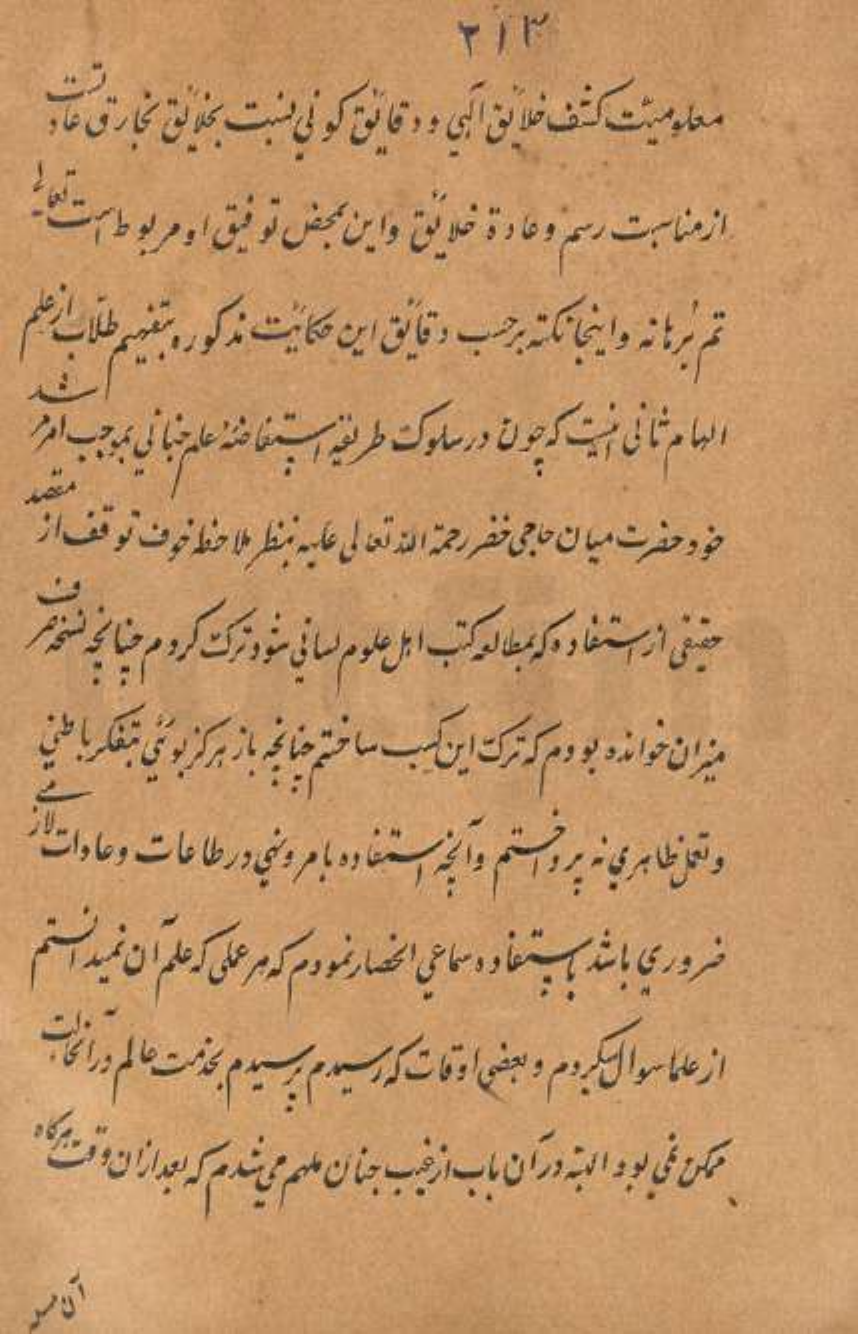 ۲۱۳
معلومیت کشف خلایق الٰهی و دقایق کونی نسبت بخلایق بخارق عادتست
از مناسبت رسم و عادة خلائق واین بمحض توفیق او مربوط است تعالی
تم برهانه واینجا نکته برحسب دقایق این حکائیت مذکوره بتفهیم طلاب از علم
الهام ثانی اینست که چون در سلوک طریقه استفاضهٔ علم جنانی بموجب امر مرشد
خود حضرت میان حاجی خضر رحمة الله تعالی علیه بنظر ملاحظه خوف توقف از مقصد
حقیقی از استفاده که بمطالعه کتب اهل علوم لسانی شود ترک کردم چنانچه نسخه صرف
میزان خوانده بودم که ترک این کسب ساختم چنانچه باز هرگز بوئی بتفکر باطنی
و تعمل ظاهری نه پرداختم وآنچه استفاده بامر ونهی در طاعات و عادات لازمے
ضروری باشد باستفاده سماعی انحصار نمودم که هر عملی که علم آن نمیدانستم
از علما سوال میکردم و بعضی اوقات که رسیدم پرسیدم بخدمت عالم در آنحالت
ممکن نمی بود البته در آن باب از غیب جنان ملهم می شدم که بعد ازان وقت هرگاه
آن